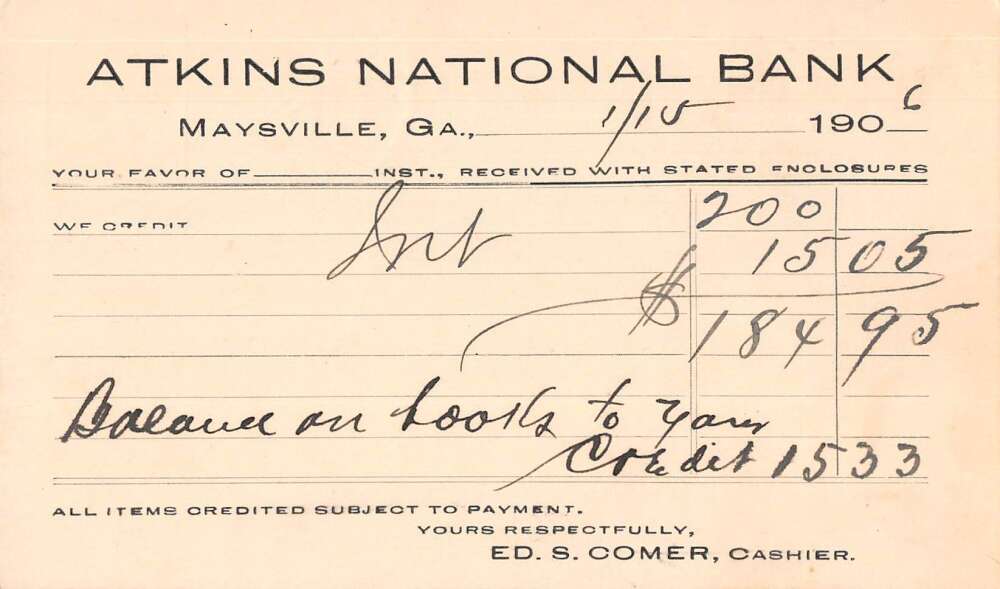 ATKINS NATIONAL BANK
MAYSVILLE, GA., 1/15 1906
YOUR FAVOR OF INST., RECEIVED WITH STATED ENCLOSURES
200
WE CREDIT Int 15 05
$ 184 95
Balance on books to your
Credit 15 33
ALL ITEMS CREDITED SUBJECT TO PAYMENT.
YOURS RESPECTFULLY,
ED. S. COMER, CASHIER.